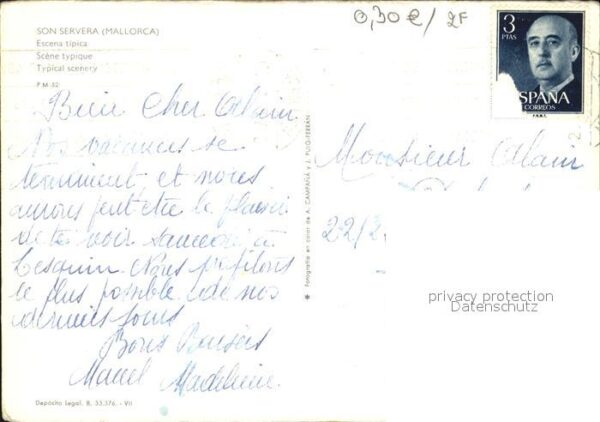 0,30€/2F
SON SERVERA (MALLORCA)
Escena típica
Scène typique
Typical scenery
P M 32
3
PTAS
ESPAÑA
CORREOS
F.N.M.T.
Bien Cher Alain
Nos vacances se
terminent, et nous
aurons peut-être le plaisir
de te voir samedi à
Lesquin. Nous profitons
le plus possible de nos
derniers jours
Bons Baisers
Marcel Madeleine.
Monsieur Alain
22/2
Fotografía en color de A. CAMPAÑÁ y J. PUIG-FERRÁN
privacy protection
Datenschutz
Depósito Legal. B. 33.376. - VII